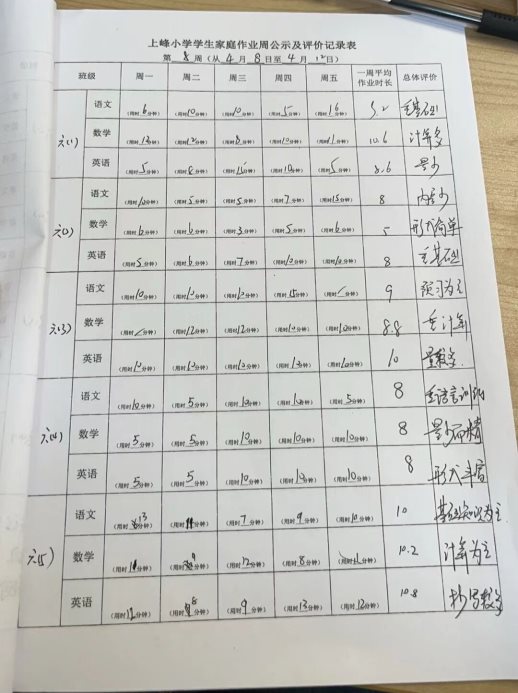 上峰小学学生家庭作业周公示及评价记录表
第 8 周（从 4 月 8 日至 4 月 12日）
班级 周一 周二 周三 周四 周五 一周平均作业时长 总体评价
六(1) 语文 (用时6分钟) (用时10分钟) (用时10分钟) (用时5分钟) (用时16分钟) 重基础
数学 (用时13分钟) (用时12分钟) (用时8分钟) (用时10分钟) 10.6 计算多
英语 (用时5分钟) (用时8分钟) (用时15分钟) (用时10分钟) (用时5分钟) 8.6 量少
六(2) 语文 (用时10分钟) (用时5分钟) (用时5分钟) (用时7分钟) (用时15分钟) 8 内容少
数学 (用时6分钟) (用时6分钟) (用时3分钟) (用时5分钟) (用时6分钟) 5 形式简单
英语 (用时5分钟) (用时6分钟) (用时7分钟) (用时10分钟) (用时10分钟) 8 重基础
六(3) 语文 (用时10分钟) (用时10分钟) (用时10分钟) (用时15分钟) (用时 分钟) 9 预习为主
数学 (用时 分钟) (用时12分钟) (用时12分钟) (用时10分钟) (用时10分钟) 8.8 重计算
英语 (用时10分钟) (用时10分钟) (用时10分钟) (用时10分钟) (用时10分钟) 10 量较多.
六(4) 语文 (用时10分钟) (用时5分钟) (用时10分钟) (用时10分钟) (用时5分钟) 8 重语言训练
数学 (用时5分钟) (用时5分钟) (用时10分钟) (用时10分钟) (用时10分钟) 8 量少而精
英语 (用时5分钟) (用时5分钟) (用时10分钟) (用时10分钟) (用时10分钟) 8 形式丰富
六(5) 语文 (用时13分钟) (用时11分钟) (用时7分钟) (用时9分钟) (用时10分钟) 10 基础知识为主
数学 (用时11分钟) (用时9分钟) (用时12分钟) (用时8分钟) (用时11分钟) 10.2 计算为主
英语 (用时12分钟) (用时8分钟) (用时9分钟) (用时13分钟) (用时12分钟) 10.8 抄写较多